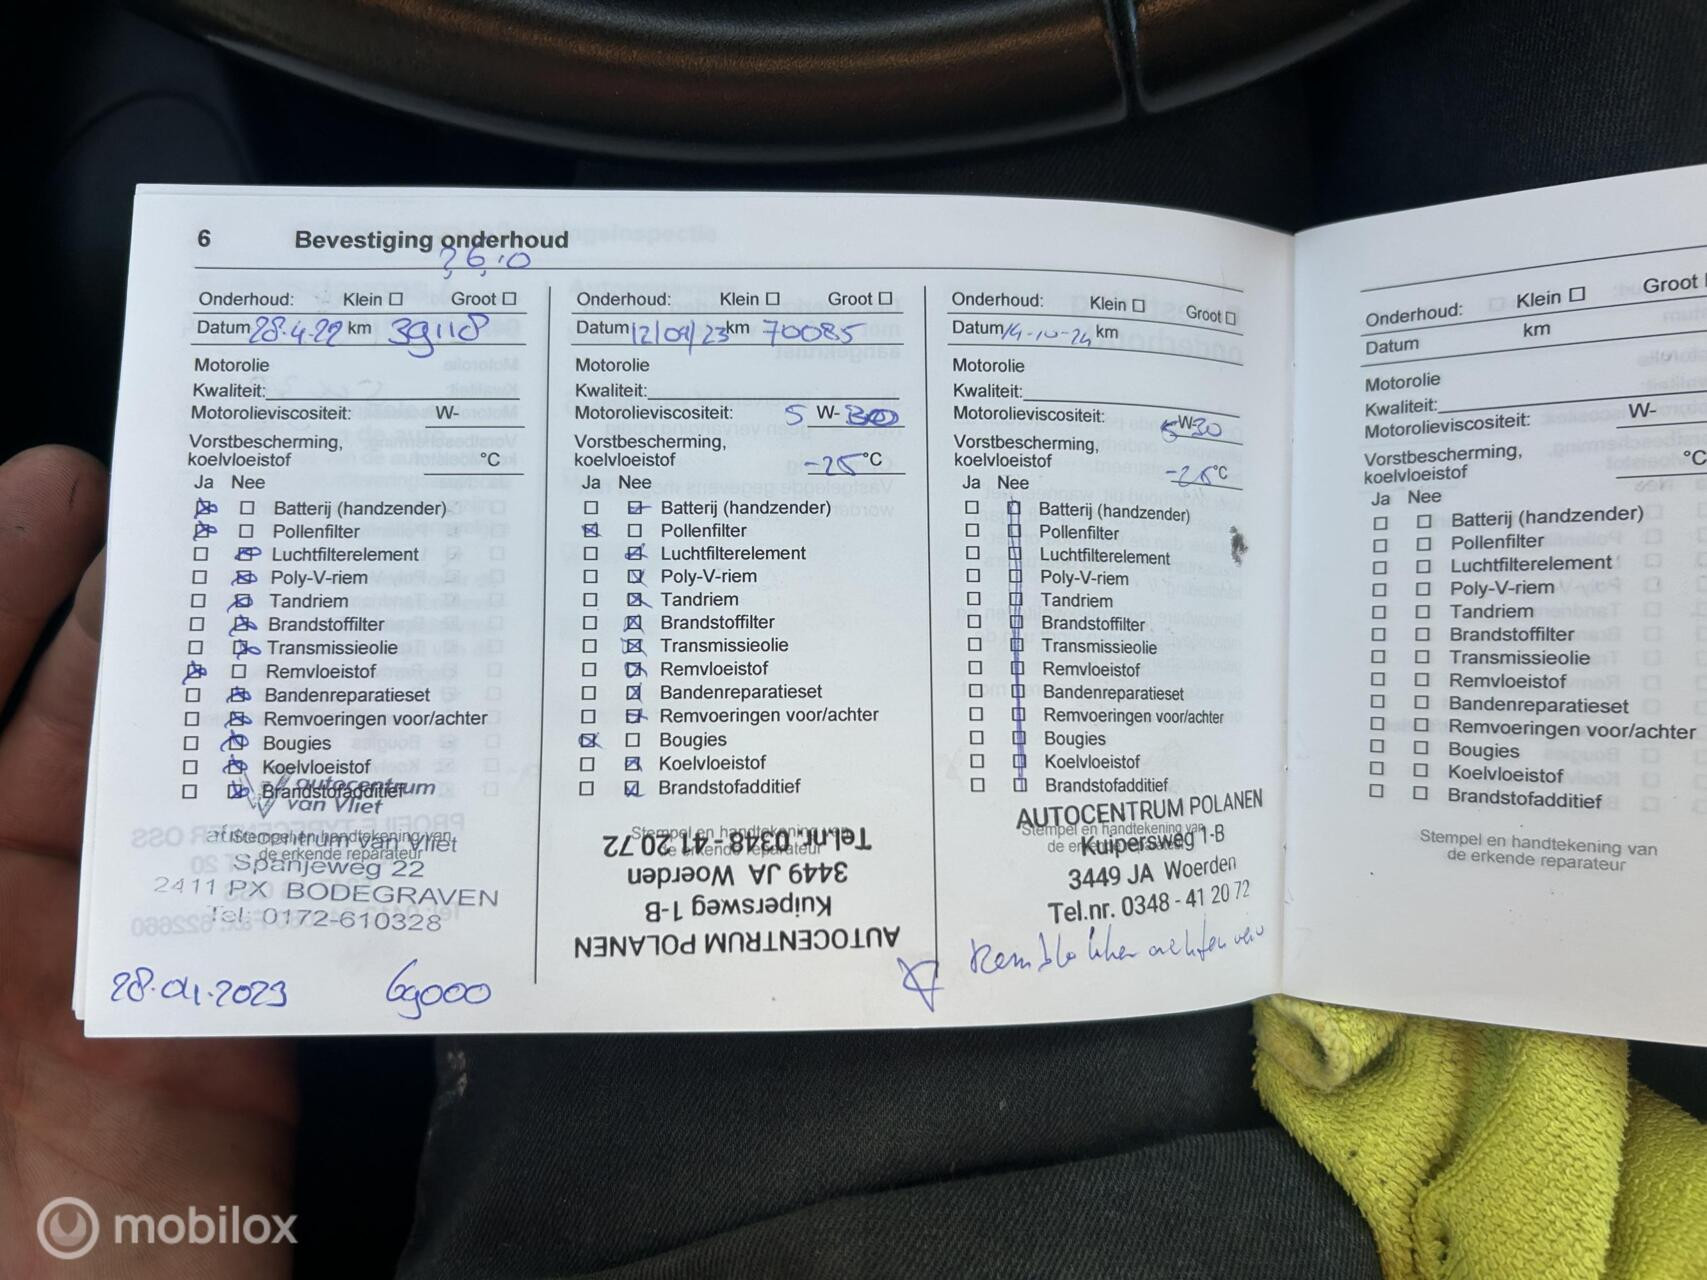 6 Bevestiging onderhoud
26,0
Onderhoud: Klein ☐ Groot ☐
Datum 28.4.22 km 39118
Motorolie
Kwaliteit:
Motorolieviscositeit: W-
Vorstbescherming,
koelvloeistof °C
Ja Nee
Batterij (handzender)
Pollenfilter
Luchtfilterelement
Poly-V-riem
Tandriem
Brandstoffilter
Transmissieolie
Remvloeistof
Bandenreparatieset
Remvoeringen voor/achter
Bougies
Koelvloeistof
Brandstofadditief
autocentrum
van Vliet
Stempel en handtekening van
de erkende reparateur
autocentrum van Vliet
Spanjeweg 22
2411 PX BODEGRAVEN
Tel: 0172-610328
28.04.2023 69000
Onderhoud: Klein ☐ Groot ☐
Datum 12/09/23 km 70085
Motorolie
Kwaliteit:
Motorolieviscositeit: 5 W-30
Vorstbescherming,
koelvloeistof -25 °C
Ja Nee
Batterij (handzender)
Pollenfilter
Luchtfilterelement
Poly-V-riem
Tandriem
Brandstoffilter
Transmissieolie
Remvloeistof
Bandenreparatieset
Remvoeringen voor/achter
Bougies
Koelvloeistof
Brandstofadditief
Stempel en handtekening van
de erkende reparateur
AUTOCENTRUM POLANEN
Kuipersweg 1-B
3449 JA Woerden
Tel.nr. 0348 - 41.20.72
Onderhoud: Klein ☐ Groot ☐
Datum 14-10-24 km
Motorolie
Kwaliteit:
Motorolieviscositeit: 5W-30
Vorstbescherming,
koelvloeistof -25°C
Ja Nee
Batterij (handzender)
Pollenfilter
Luchtfilterelement
Poly-V-riem
Tandriem
Brandstoffilter
Transmissieolie
Remvloeistof
Bandenreparatieset
Remvoeringen voor/achter
Bougies
Koelvloeistof
Brandstofadditief
Stempel en handtekening van
de erkende reparateur
AUTOCENTRUM POLANEN
Kuipersweg 1-B
3449 JA Woerden
Tel.nr. 0348 - 41 20 72
Remblokken achter
Onderhoud: Klein ☐ Groot
Datum km
Motorolie
Kwaliteit:
Motorolieviscositeit: W-
Vorstbescherming,
koelvloeistof °C
Ja Nee
Batterij (handzender)
Pollenfilter
Luchtfilterelement
Poly-V-riem
Tandriem
Brandstoffilter
Transmissieolie
Remvloeistof
Bandenreparatieset
Remvoeringen voor/achter
Bougies
Koelvloeistof
Brandstofadditief
Stempel en handtekening van
de erkende reparateur
mobilox